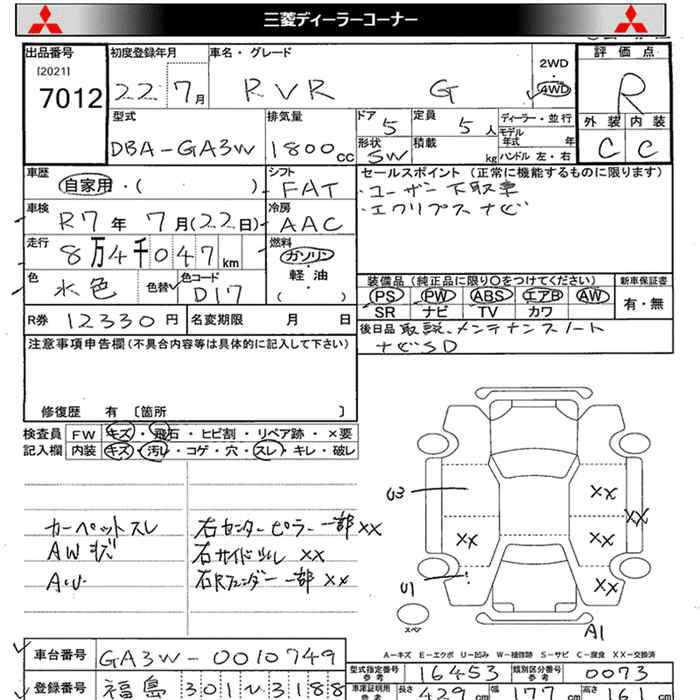 三菱ディーラーコーナー
出品番号 [2021] 7012
初度登録年月 22 7月
車名・グレード RVR G
2WD 4WD
評価点 R
型式 DBA-GA3W
排気量 1800cc
ドア 5 定員 5人
形状 SW 積載 kg
ディーラー・並行
モデル年式 年式
ハンドル 左・右
外装 内装
C C
車歴 自家用・( )
シフト FAT
セールスポイント (正常に機能するものに限ります)
・ユーザー下取車
・エクリプスナビ
車検 R7年 7月(22日)
冷房 AAC
走行 8万4千047km
燃料 ガソリン・軽・油 ( )
色 水色 色替 色コード D17
装備品 (純正品に限り○をつけてください) 新車保証書
PS PW ABS エアB AW 有・無
SR ナビ TV カワ
R券 12330円 名変期限 月 日
後日品 取説、メンテナンスノート
ナビSD
注意事項申告欄 (不具合内容等は具体的に記入して下さい)
修復歴 有 〔箇所 〕
検査員記入欄
FW キズ・飛石・ヒビ割・リペア跡・×要
内装 キズ・汚レ・コゲ・穴・スレ・キレ・破レ
カーペットスレ
AWキズ
右センターピラー一部XX
右サイドシル XX
右Rフェンダー一部XX
U3 XX XX
XX XX
U1 XX
スペア A1
A-キズ E-エクボ U-凹み W-補修跡 S-サビ C-腐食 XX-交換済
車台番号 GA3W-0010749
型式指定番号 参考 16453 類別区分番号 参考 0073
登録番号 福島 301 ナ 3188
車庫証明用 参考 長さ 429cm 幅 177cm 高さ 161cm